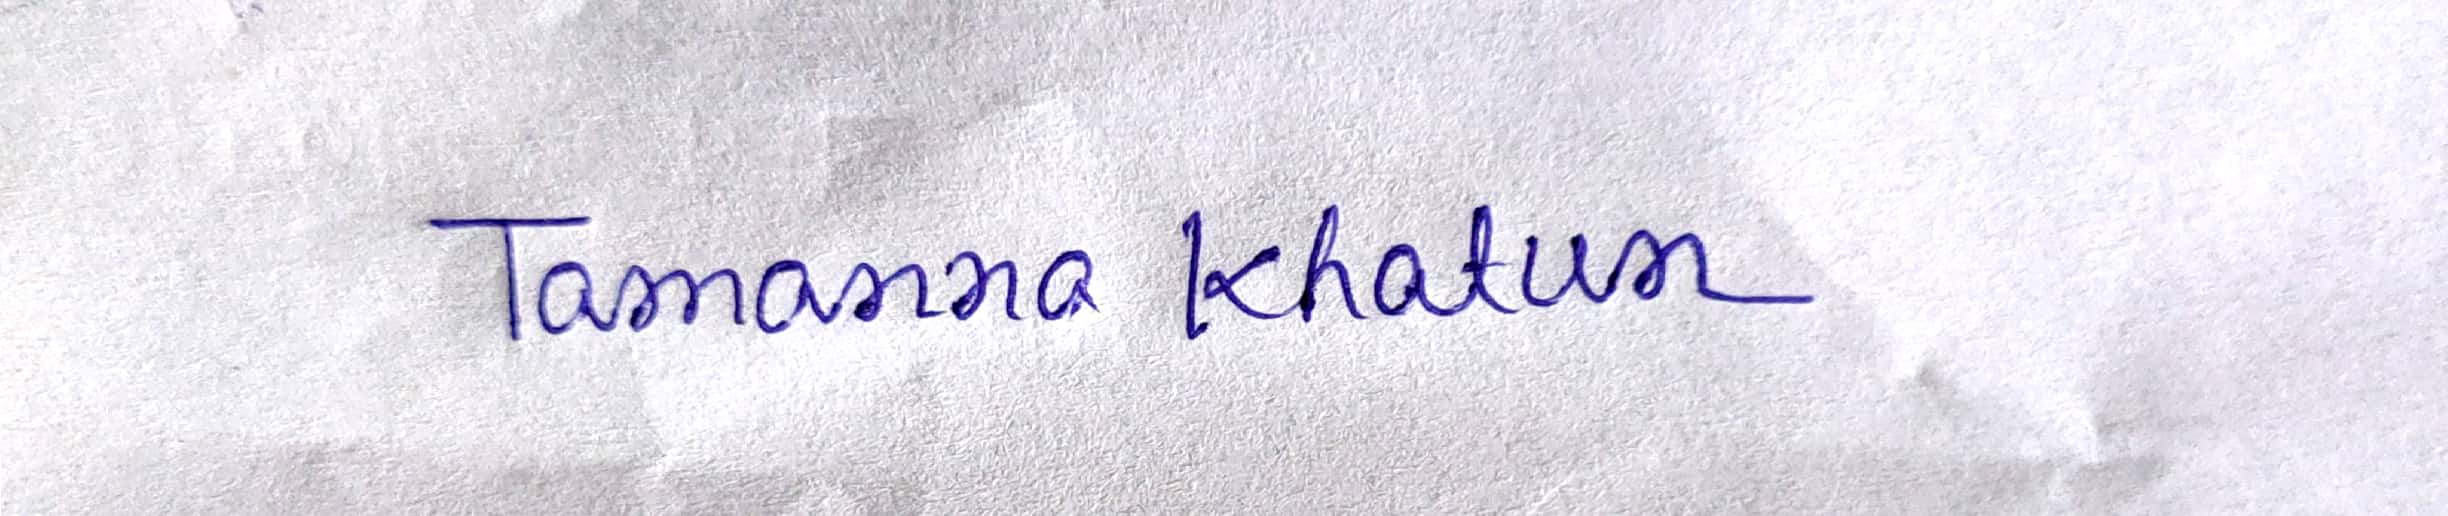 Tamanna Khatun